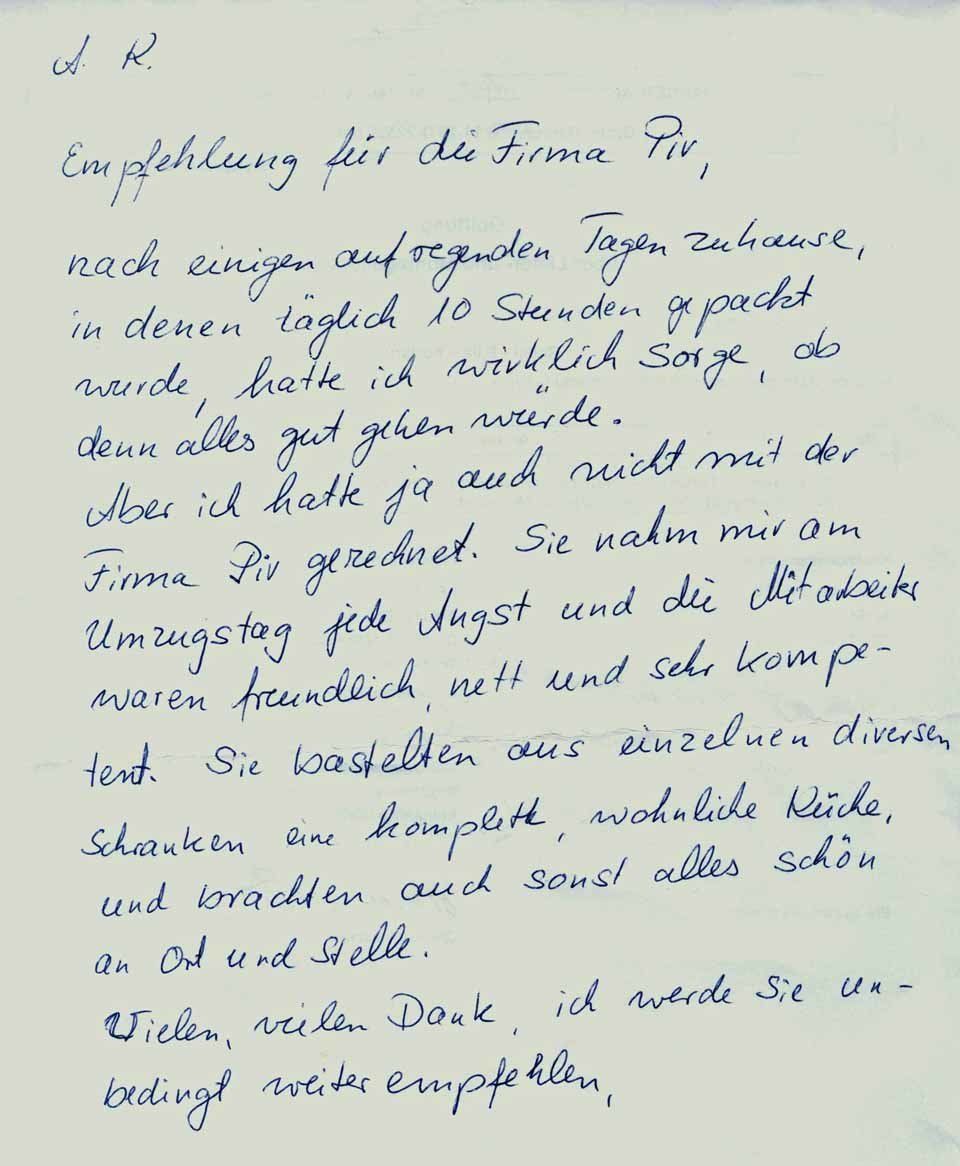 A. R.
Empfehlung für die Firma Piv,
nach einigen aufregenden Tagen zuhause,
in denen täglich 10 Stunden gepackt
wurde, hatte ich wirklich Sorge, ob
denn alles gut gehen würde.
Aber ich hatte ja auch nicht mit der
Firma Piv gerechnet. Sie nahm mir am
Umzugstag jede Angst und die Mitarbeiter
waren freundlich, nett und sehr kompe-
tent. Sie bastelten aus einzelnen diversen
Schranken eine komplette, wohnliche Küche,
und brachten auch sonst alles schön
an Ort und Stelle.
Vielen, vielen Dank, ich werde Sie un-
bedingt weiterempfehlen,